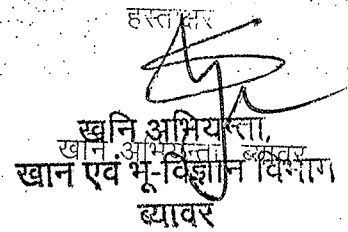 हस्ताक्षर
खनि अभियन्ता,
खान अभियन्ता ब्यावर
खान एवं भू-विज्ञान विभाग
ब्यावर